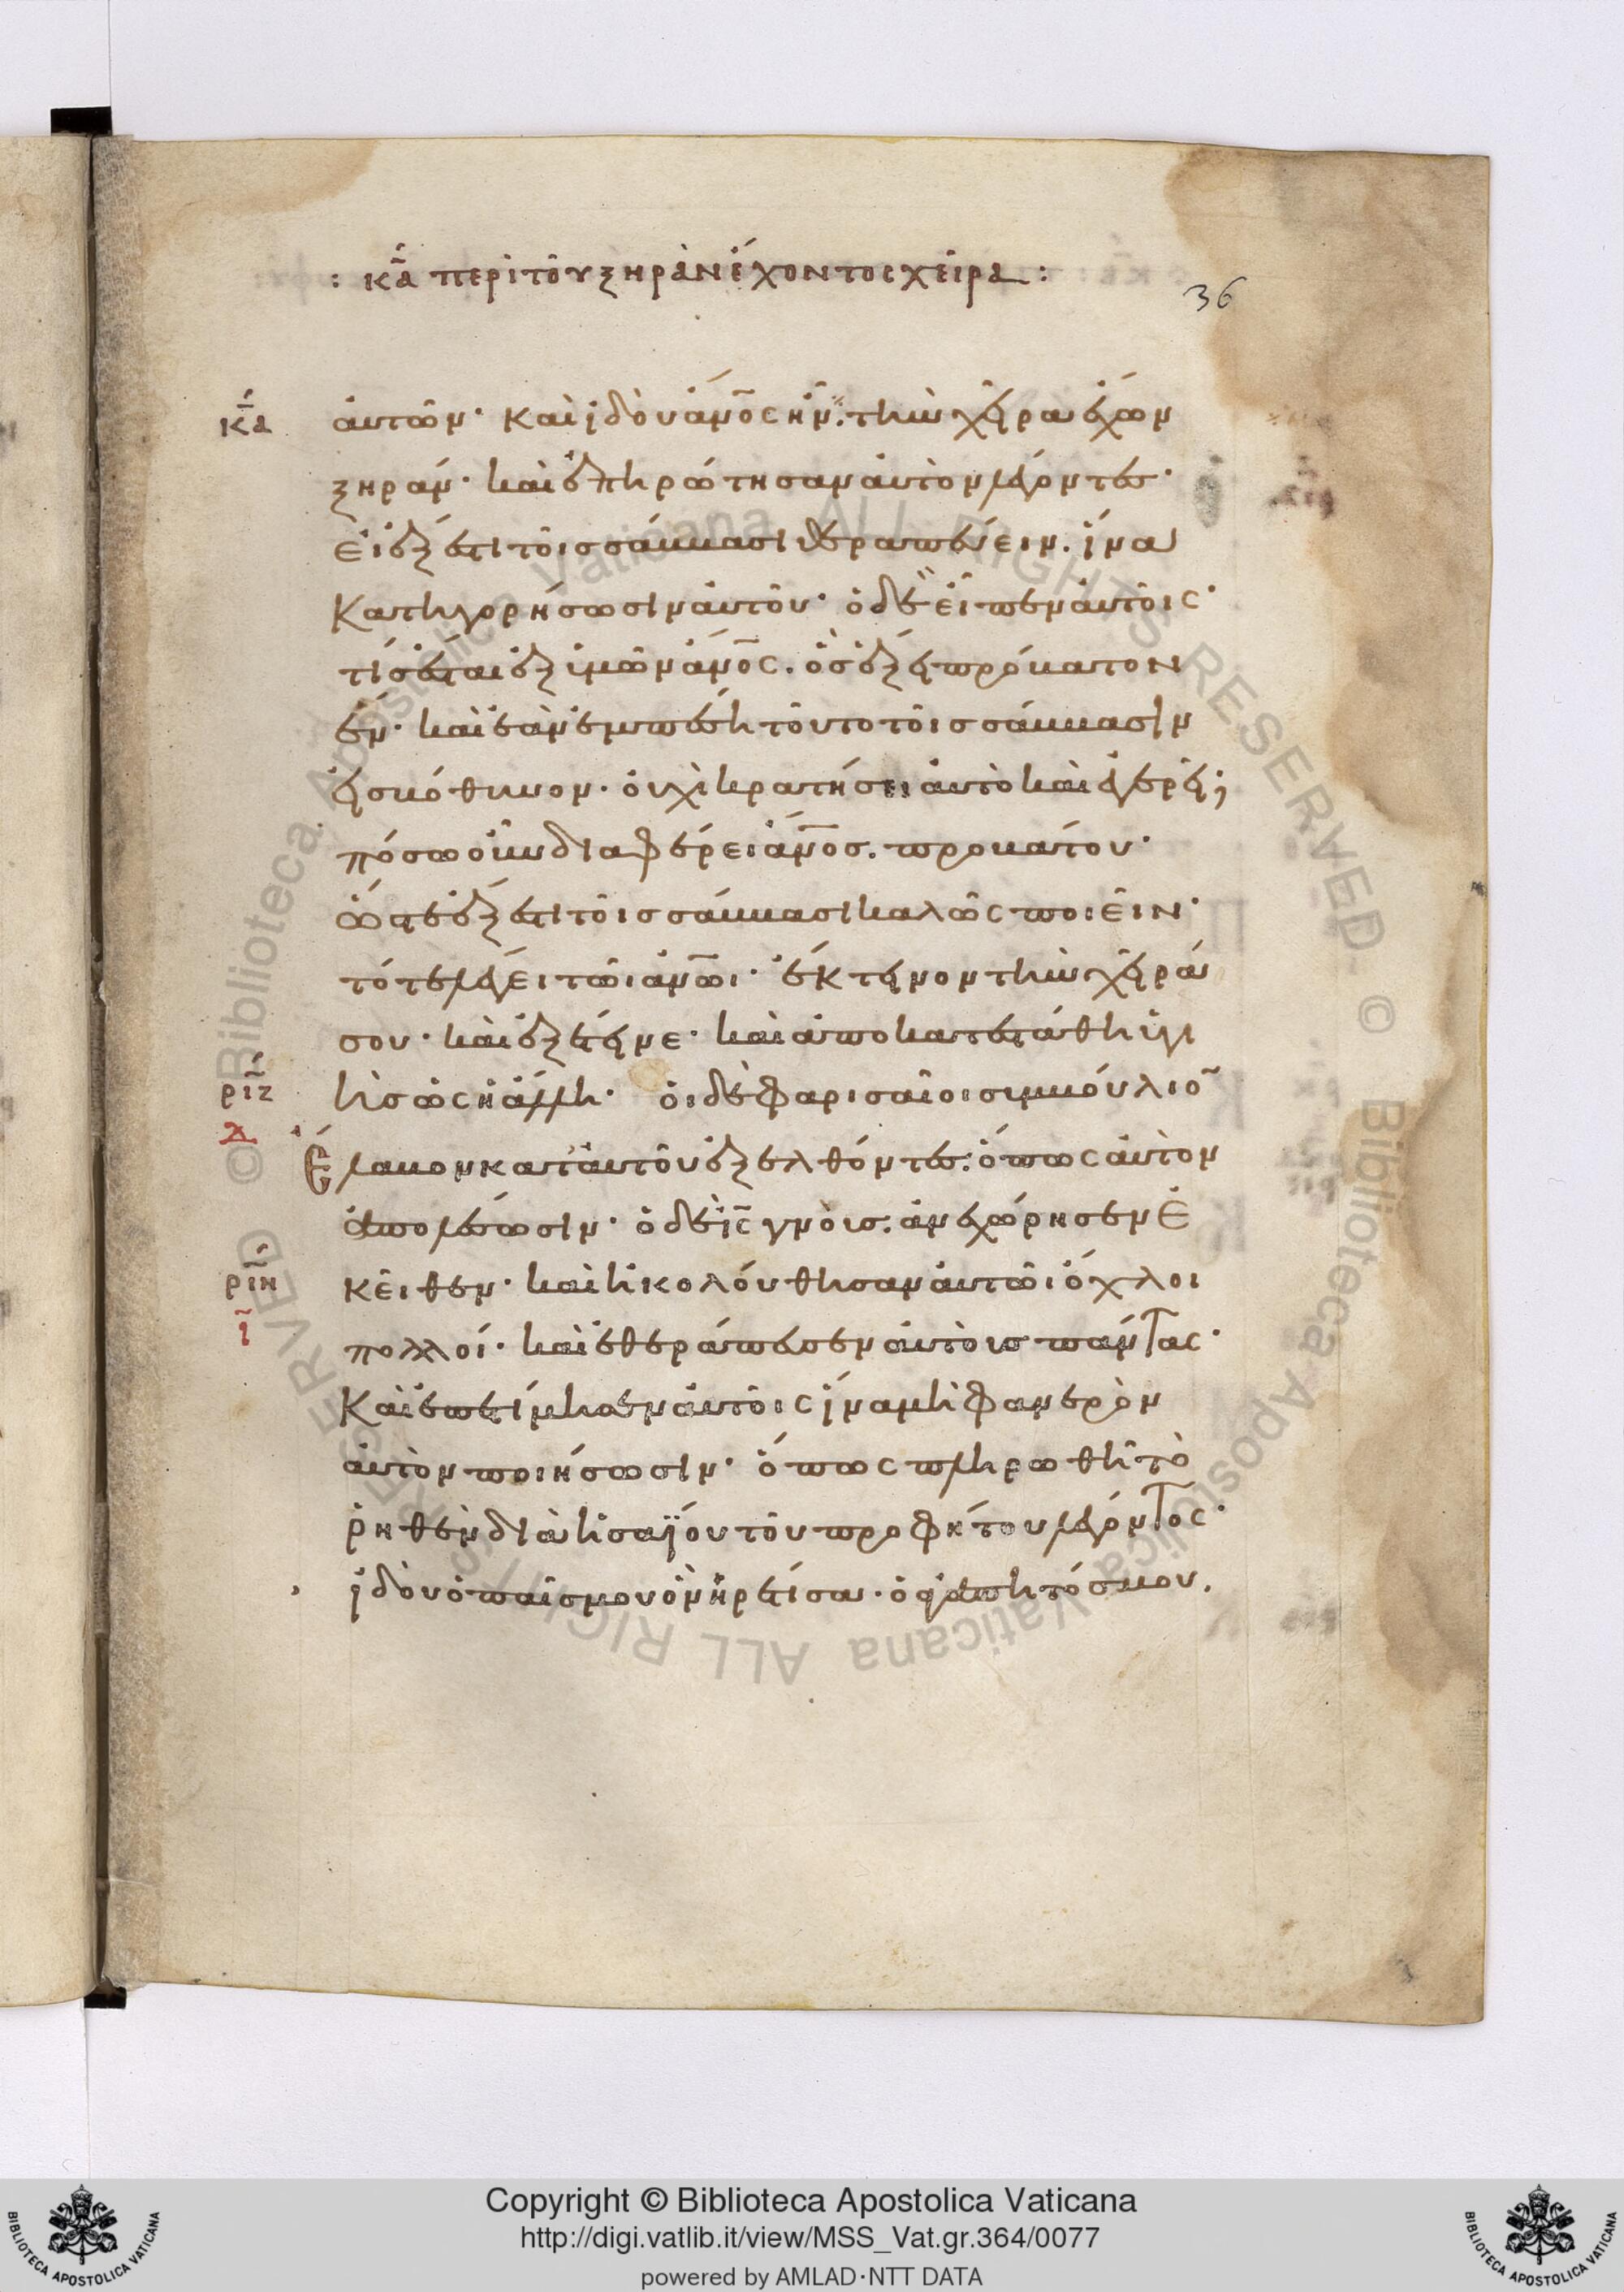 : κα περὶ τοῦ ξηρὰν ἔχοντος χεῖρα :
36
κα
αυτῶν· καὶ ἰδοὺ ἄνος ἦν. τὴν χεῖρα ἔχων
ξηράν· καὶ ἐπηρώτησαν αὐτὸν λέγοντες·
εἰ ἔξεστι τοῖς σάββασι θεραπεύειν. ἵνα
κατηγορήσωσιν αὐτοῦ· ὁ δὲ εἶπεν αὐτοῖς·
τίς ἔσται ἐξ ὑμῶν ἄνος. ὃς ἕξει πρόβατον
ἕν· καὶ ἐὰν ἐμπέσῃ τοῦτο τοῖς σάββασιν
εἰς βόθυνον. οὐχὶ κρατήσει αὐτὸ καὶ ἐγερεῖ;
πόσω οὖν διαφέρει ἄνος. προβάτου·
ὥστε ἔξεστι τοῖς σάββασι καλῶς ποιεῖν·
τότε λέγει τῶι ἀνωι· ἔκτεινον τὴν χεῖρά
σου· καὶ ἐξέτεινε· καὶ ἀποκατεστάθη ὑγι
ὴς ὡς ἡ ἄλλη· οἱ δὲ φαρισαῖοι συμβούλιο
ριζ
Ἔλαβον κατ' αὐτοῦ ἐξελθόντες. ὅπως αὐτὸν
ἀπολέσωσιν· ὁ δὲ ις γνοὺς. ἀνεχώρησεν ἐ
κεῖθεν· καὶ ἠκολούθησαν αὐτῶι ὄχλοι
ριη
ι
πολλοί· καὶ ἐθεράπευσεν αὐτοὺς πάντας·
Καὶ ἐπετίμησεν αὐτοῖς ἵνα μὴ φανερὸν
αὐτὸν ποιήσωσιν· ὅπως πληρωθῆ τὸ
ῥηθὲν διὰ ἠσαΐου τοῦ προφήτου λέγοντος·
ἰδοὺ ὁ παῖς μου ὃν ἡρέτισα· ὁ ἀγαπητός μου.
Copyright © Biblioteca Apostolica Vaticana
http://digi.vatlib.it/view/MSS_Vat.gr.364/0077
powered by AMLAD·NTT DATA
BIBLIOTECA APOSTOLICA VATICANA
BIBLIOTECA APOSTOLICA VATICANA
© Biblioteca Apostolica Vaticana ALL RIGHTS RESERVED
© Biblioteca Apostolica Vaticana ALL RIGHTS RESERVED